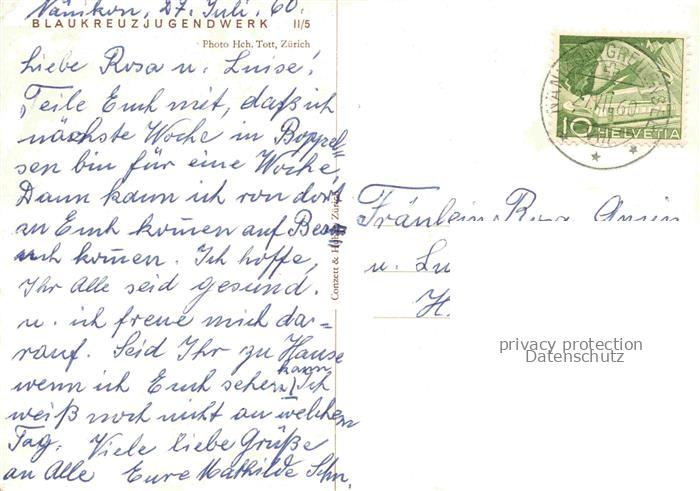 Nänikon, 27. Juli. 60.
BLAUKREUZJUGENDWERK II/5
Photo Hch. Tott, Zürich
Liebe Rosa u. Luise!
Teile Euch mit, daß ich
nächste Woche in Boppel=
sen bin für eine Woche,
Dann kann ich von dort
zu Euch kom̅en auf Besu
uch kom̅en. Ich hoffe,
Ihr Alle seid gesund.
u. ich freue mich da=
rauf. Seid Ihr zu Hause
wenn ich Euch sehen kann, Ich
weiß noch nicht an welchem
Tag. Viele liebe Grüße
an Alle Eure Mathilde Schn.
Conzett & Huber Zürich
HELVETIA
10
Fräulein Rosa
u. Lu
H.
privacy protection
Datenschutz